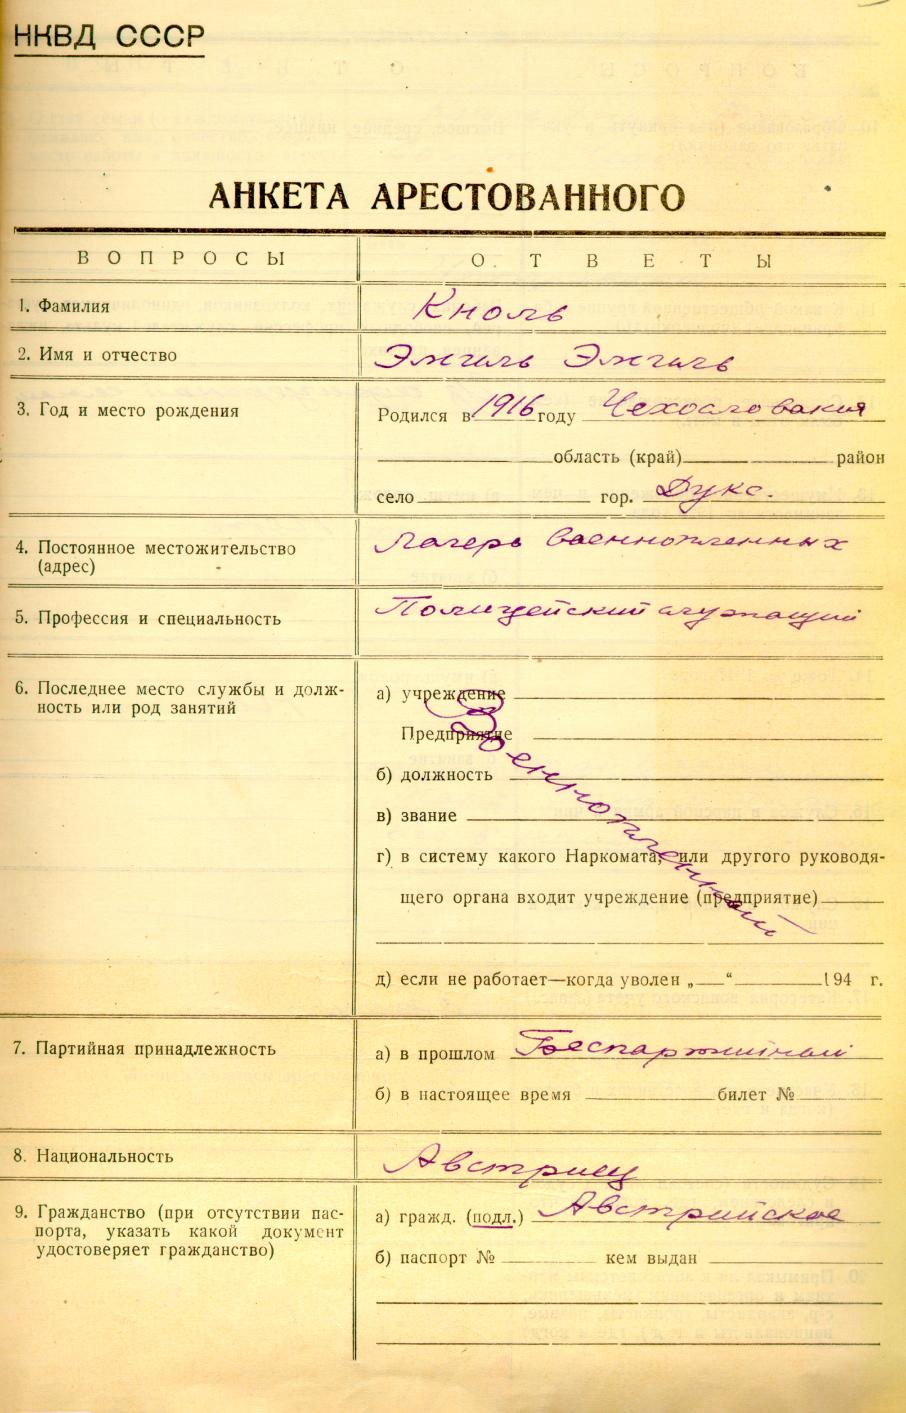 НКВД СССР
АНКЕТА АРЕСТОВАННОГО
ВОПРОСЫ
ОТВЕТЫ
1. Фамилия
Кноль
2. Имя и отчество
Эмиль Эмиль
3. Год и место рождения
Родился в 1916 году Чехословакия
область (край) район
село гор. Дукс.
4. Постоянное местожительство
(адрес)
Лагерь военнопленных
5. Профессия и специальность
Полицейский служащий
6. Последнее место службы и долж-
ность или род занятий
а) учреждение
Предприятие
б) должность
в) звание
г) в систему какого Наркомата, или другого руководя-
щего органа входит учреждение (предприятие)
Военнопленный
д) если не работает—когда уволен „ “ 194 г.
7. Партийная принадлежность
а) в прошлом Беспартийный
б) в настоящее время билет №
8. Национальность
Австриец
9. Гражданство (при отсутствии пас-
порта, указать какой документ
удостоверяет гражданство)
а) гражд. (подл.) Австрийское
б) паспорт № кем выдан